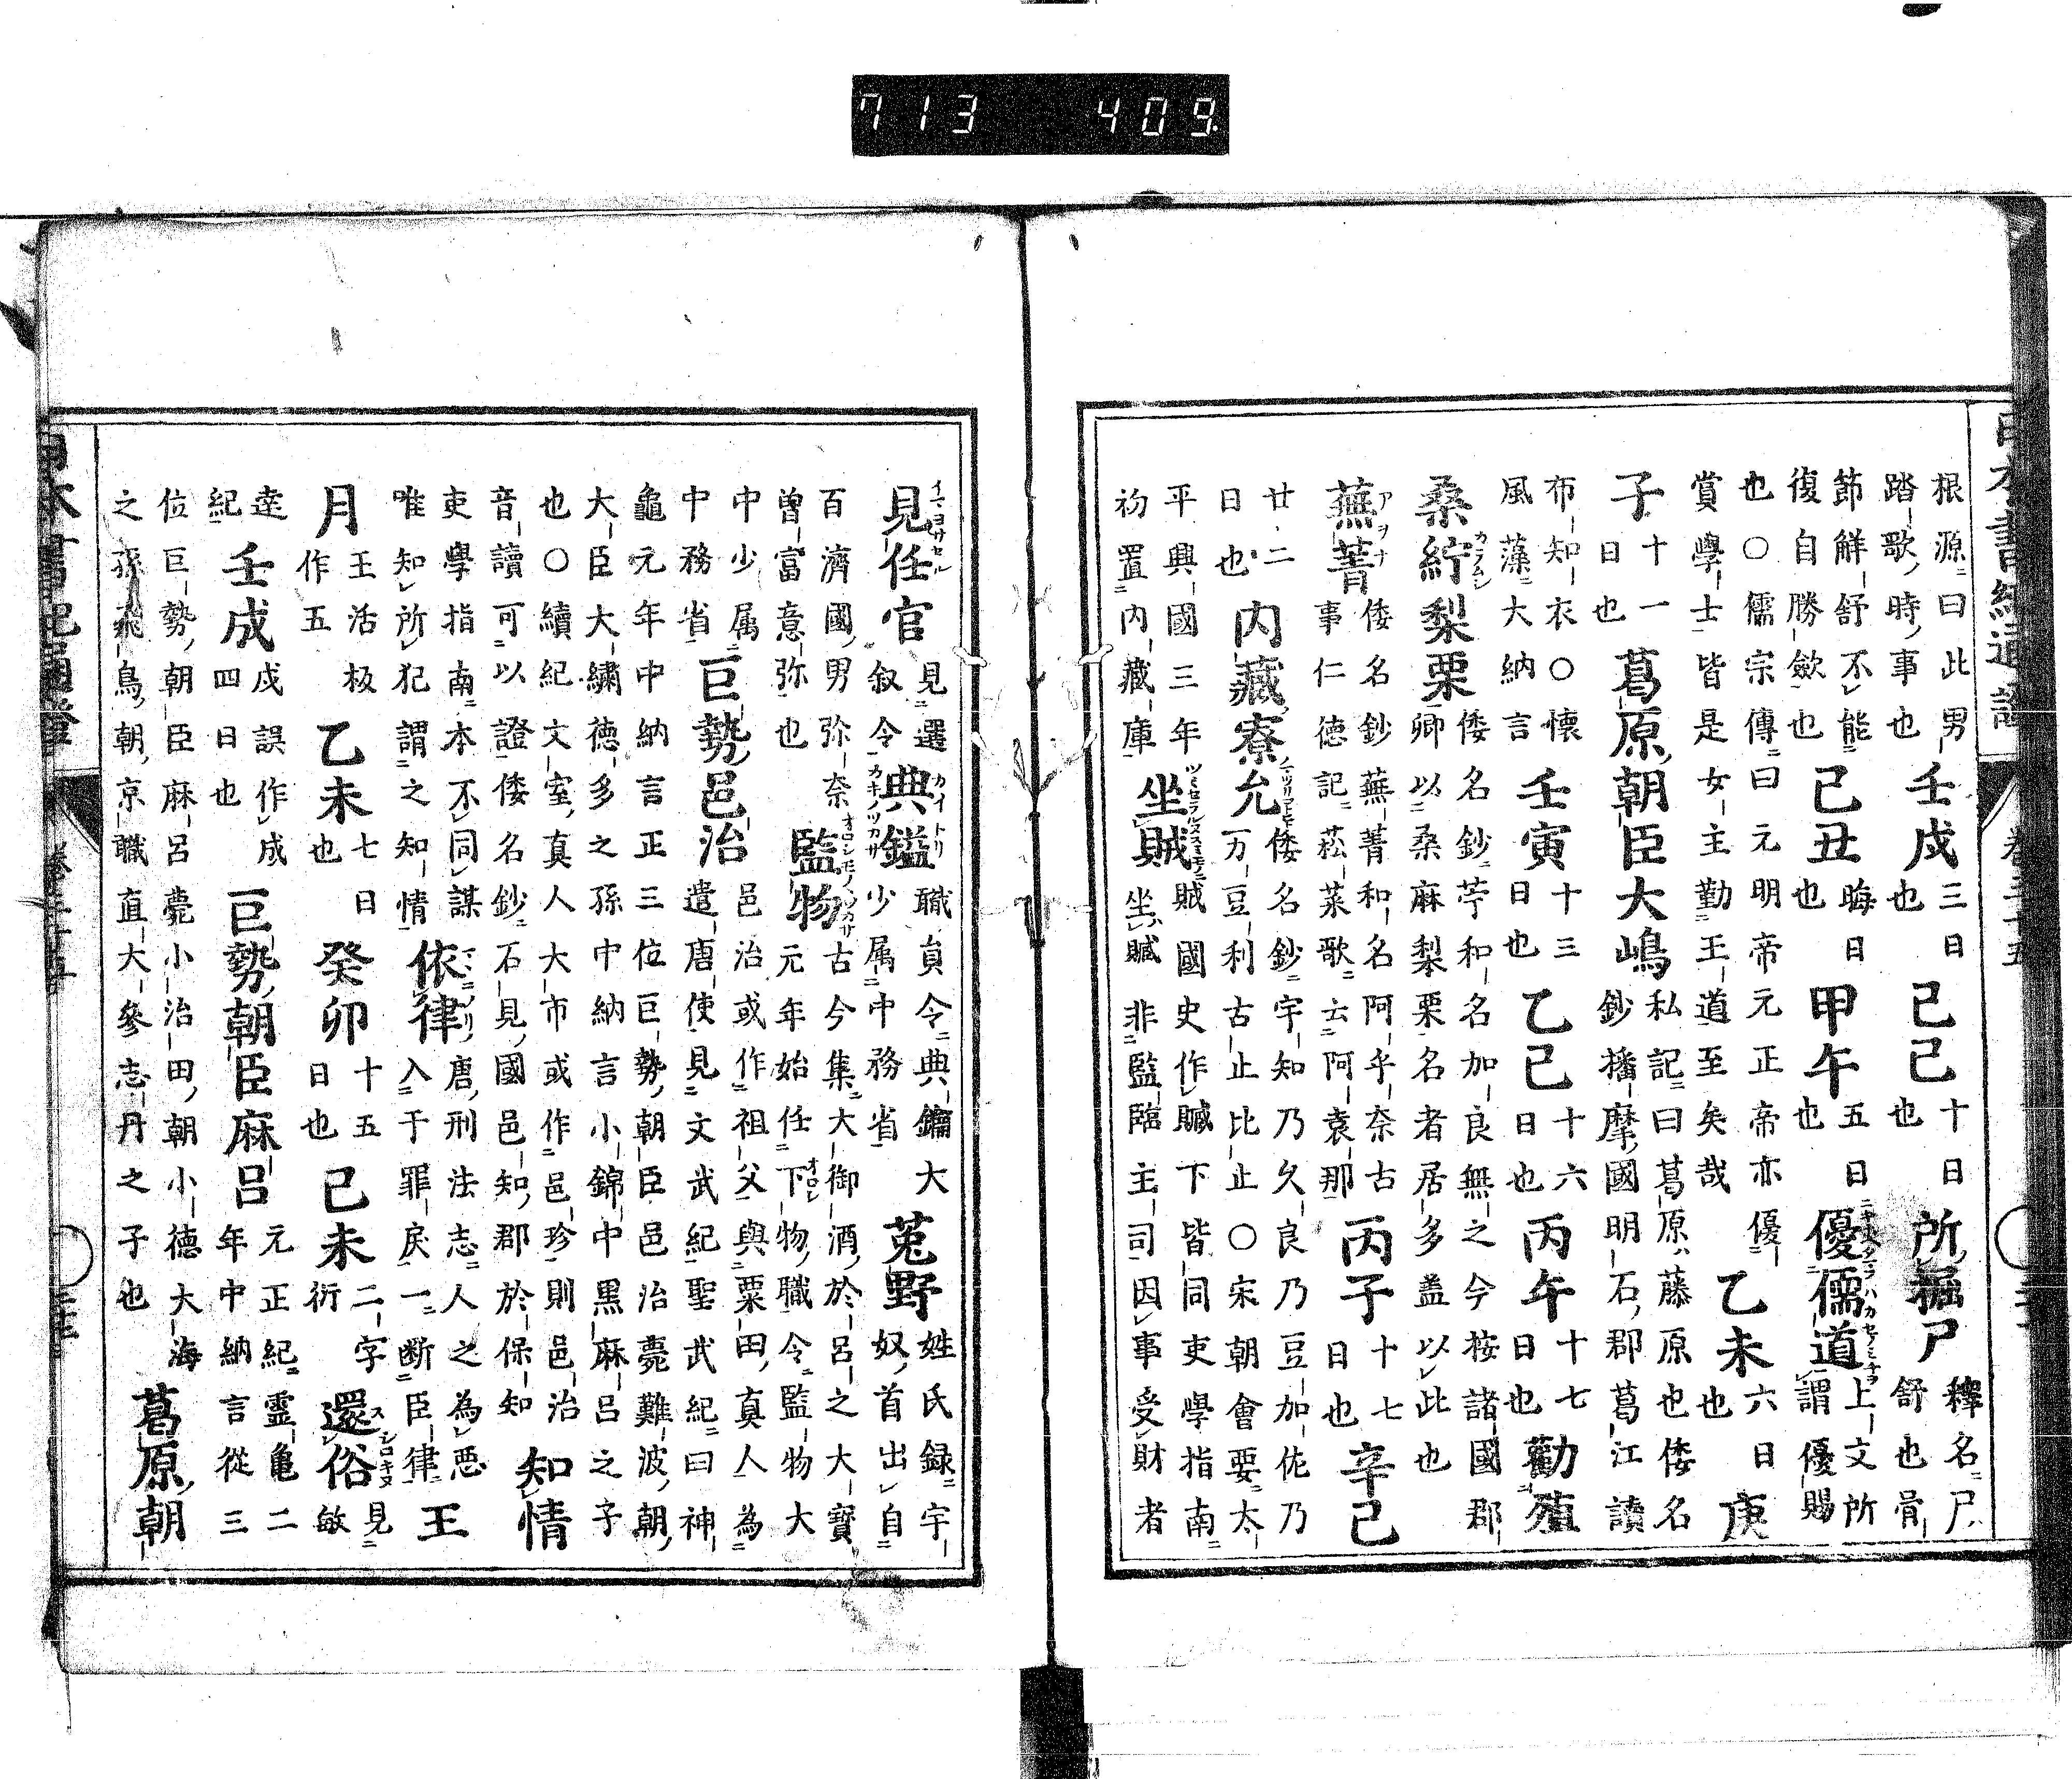 日本書紀通證 卷三十五
根源曰此男踏歌時事也壬戌三日也己已十日也所掘尸釋名尸舒也骨
節解舒不能復自勝斂也己丑晦日也甲午五日也優儒道上文所謂優賜
也○儒宗傳曰元明帝元正帝亦優賞學士皆是女主勤王道至矣哉乙未六日也庚
子十一日也葛原朝臣大嶋私記曰葛原ハ藤原也倭名鈔播摩國明石郡葛江讀
布知衣○懷風藻大納言壬寅十三日也乙已十六日也丙午十七日也勸殖
桑紵梨栗倭名鈔苧和名加良無之今按諸國郡卿以桑麻梨栗名者居多盖以此也
蕪菁倭名鈔蕪菁和名阿乎奈古事仁徳記菘菜歌云阿袁那丙子十七日也辛已
廿二日也内藏寮允倭名鈔宇知乃久良乃豆加佐乃万豆利古止比止○宋朝會要太
平興國三年初置内藏庫坐賊賊國史作贓下皆同吏學指南坐贓非監臨主司因事受財者
見任官見選叙令典鎰職員令典鑰大少属中務省菟野姓氏録宇奴首出自
百濟國男弥奈曽富意弥也監物古今集大御酒於呂之大寳元年始任下物職令監物大
中少属中務省巨勢邑治邑治或作祖父與粟田真人為遣唐使見文武紀聖武紀曰神
龜元年中納言正三位巨勢朝臣邑治薨難波朝大臣大繍徳多之孫中納言小錦中黒麻呂之子
也○續紀文室真人大市或作邑珍則邑治音讀可以證倭名鈔石見國邑知郡於保知知情
吏學指南本不同謀唯知所犯謂之知情依律唐刑法志人之為惡入于罪戻一断臣律王
月王活板作五乙未七日也癸卯十五日也己未二字衍還俗見敏
達紀壬成戌誤作成四日也巨勢朝臣麻呂元正紀霊亀二年中納言從三
位巨勢朝臣麻呂薨小治田朝小徳大海之孫飛鳥朝京職直大參志丹之子也葛原朝
713 409